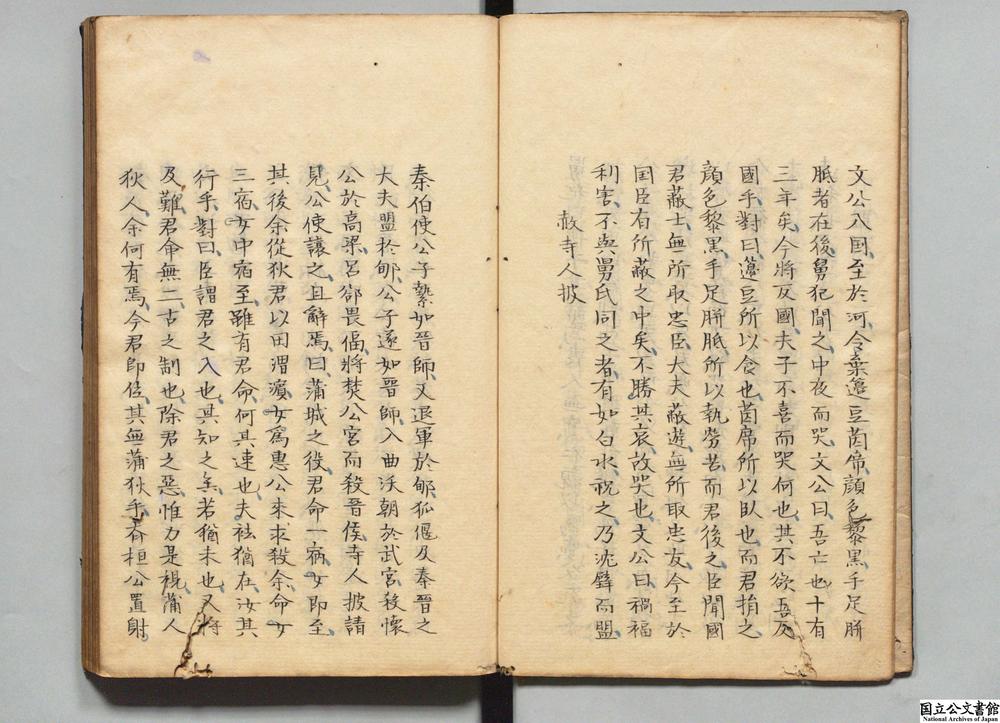 文公入国至於河令棄籩豆茵席顔色黎黒手足胼
胝者在後舅犯聞之中夜而哭文公曰吾亡也十有
三年矣今將反國夫子不喜而哭何也其不欲吾反
國乎對曰籩豆所以食也茵席所以臥也而君捐之
顔色黎黒手足胼胝所以執勞苦而君後之臣聞國
君蔽士無所取忠臣大夫蔽遊無所取忠友今至於
国臣有所蔽之中矣不勝其哀故哭也文公曰禍福
利害不與舅氏同之者有如白水祝之乃沈璧而盟
赦寺人披
秦伯使公子縶如晉師又退軍於郇狐偃及秦晉之
大夫盟於郇公子遂如晉師入曲沃朝於武宮殺懷
公於高梁呂郤畏偪將焚公宮而殺晉侯寺人披請
見公使讓之且辭焉曰蒲城之役君命一宿女即至
其後余從狄君以田渭濱女爲惠公來求殺余命女
三宿女中宿至雖有君命何其速也夫袪猶在汝其
行乎對曰臣謂君之入也其知之矣若猶未也又將
及難君命無二古之制也除君之惡惟力是視蒲人
狄人余何有焉今君即位其無蒲狄乎斉桓公置射
国立公文書館
National Archives of Japan